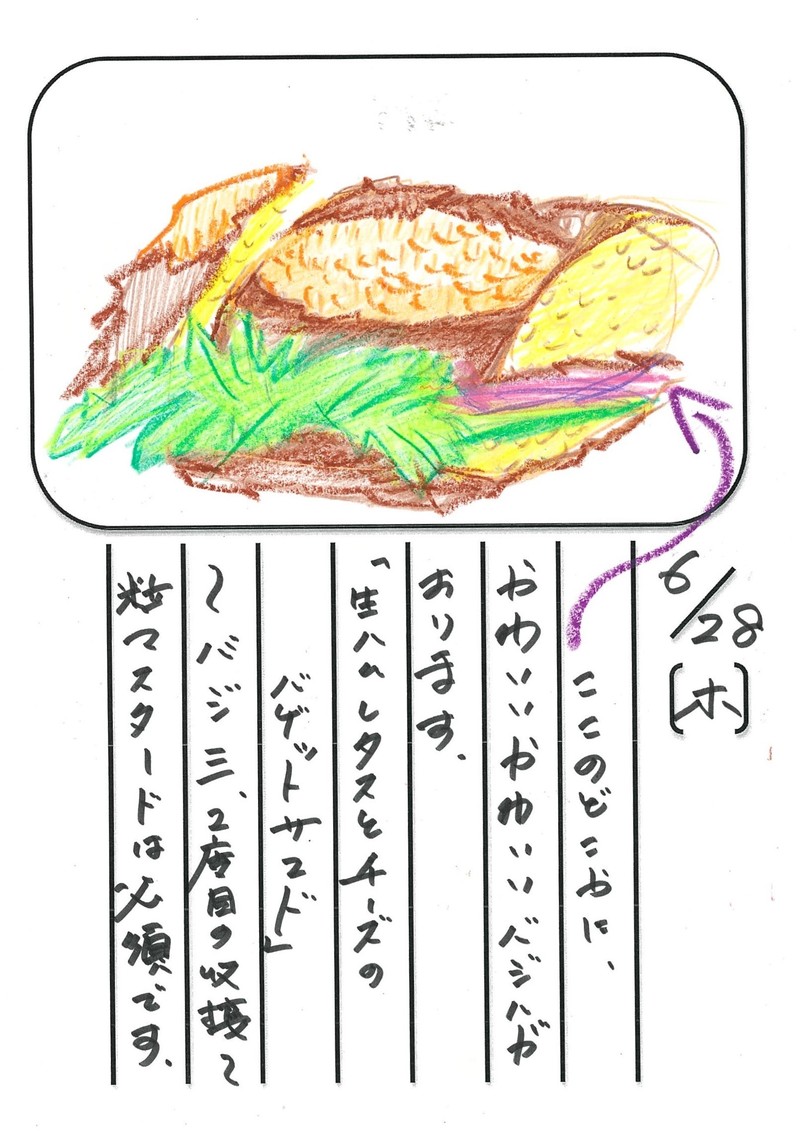 6/28
[木]
ここのどこかに、
かわいいかわいいバジルが
おります。
「生ハムレタスとチーズの
バゲットサンド」
〜バジ三、2度目の収穫〜
粒マスタードは必須です。